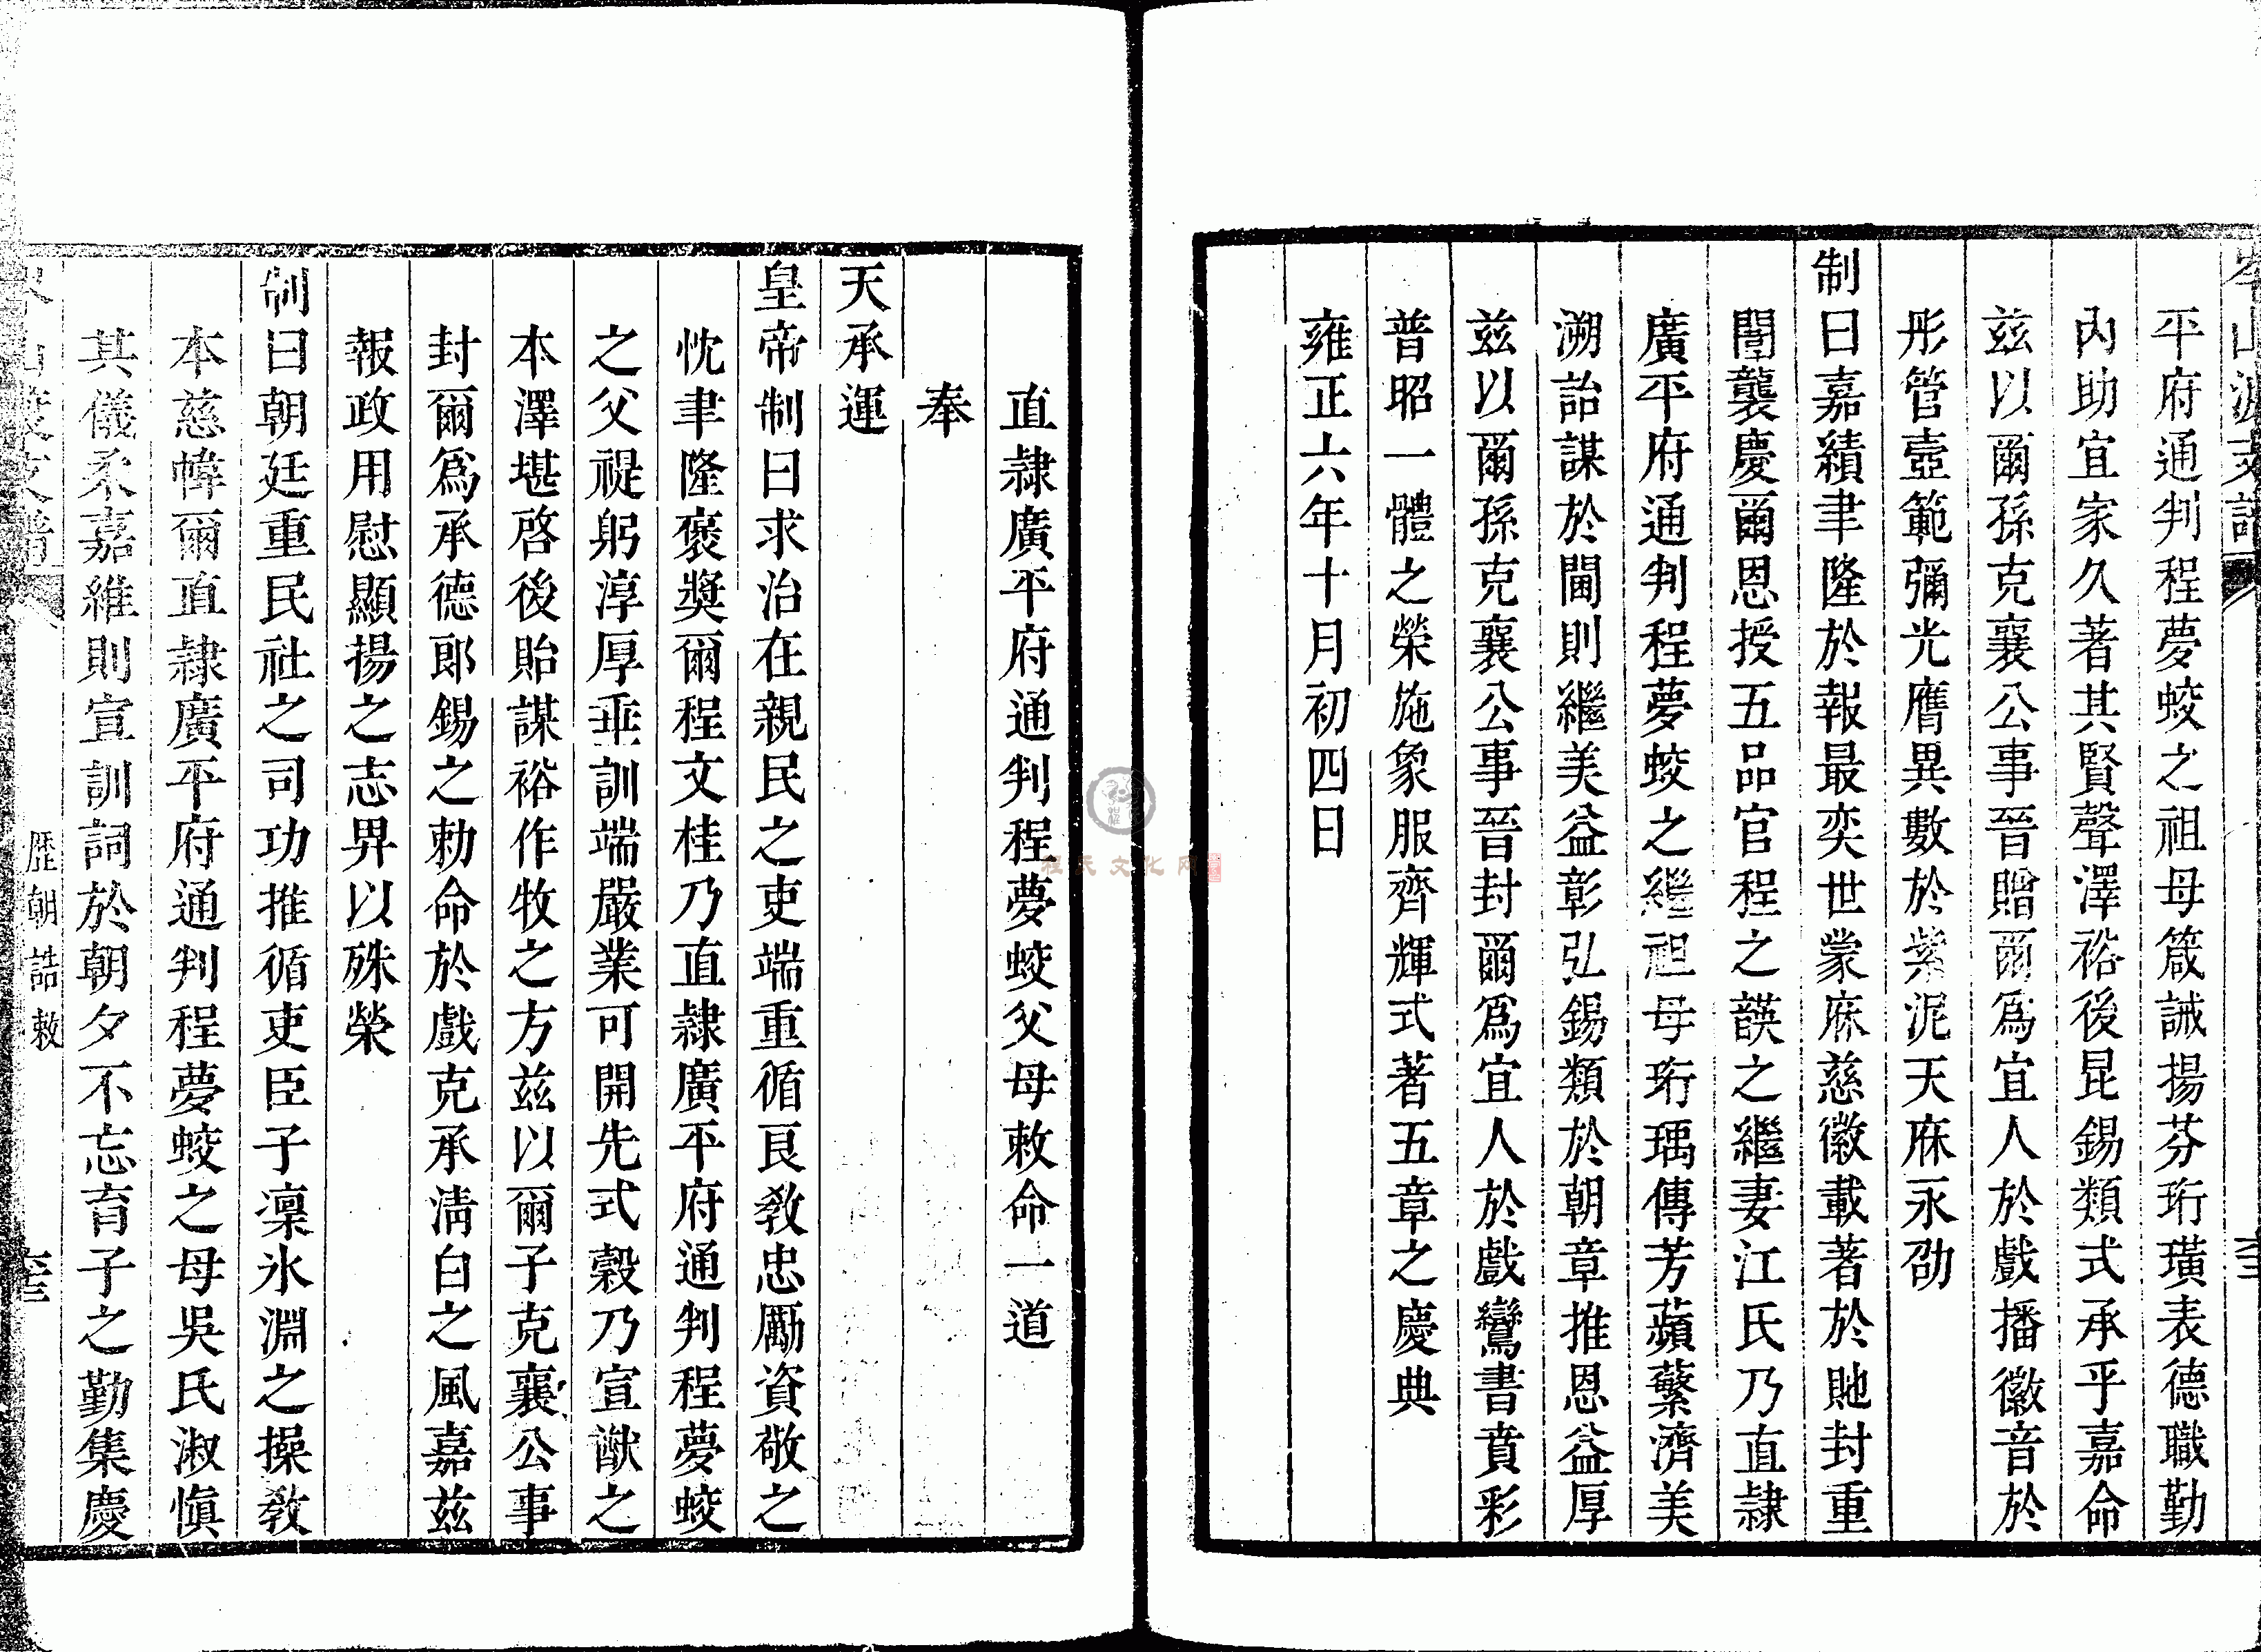 岑山渡支譜
平府通判程夢蛟之祖母箴誡揚芬珩璜表德職勤
內助宜家久著其賢聲澤裕後昆錫類式承乎嘉命
茲以爾孫克襄公事晉贈爾爲宜人於戲播徽音於
彤管壼範彌光膺異數於紫泥天庥永劭
制曰嘉績聿隆於報最奕世蒙庥慈徽載著於貤封重
闈襲慶爾恩授五品官程之韺之繼妻江氏乃直隷
廣平府通判程夢蛟之繼祖母珩瑀傳芳蘋蘩濟美
溯詒謀於閫則繼美益彰弘錫類於朝章推恩益厚
茲以爾孫克襄公事晉封爾爲宜人於戲鸞書賁彩
普昭一體之榮施象服齊輝式著五章之慶典
雍正六年十月初四日
直隷廣平府通判程夢蛟父母敕命一道
奉
天承運
皇帝制曰求治在親民之吏端重循良敎忠勵資敬之
忱聿隆褒奬爾程文桂乃直隷廣平府通判程夢蛟
之父禔躬淳厚垂訓端嚴業可開先式穀乃宣猷之
本澤堪啓後貽謀裕作牧之方茲以爾子克襄公事
封爾爲承德郎錫之勅命於戲克承淸白之風嘉茲
報政用慰顯揚之志畀以殊榮
制曰朝廷重民社之司功推循吏臣子凜氷淵之操敎
本慈幃爾直隷廣平府通判程夢蛟之母吳氏淑愼
其儀柔嘉維則宣訓詞於朝夕不忘育子之勤集慶
歷朝誥敕
程氏文化网